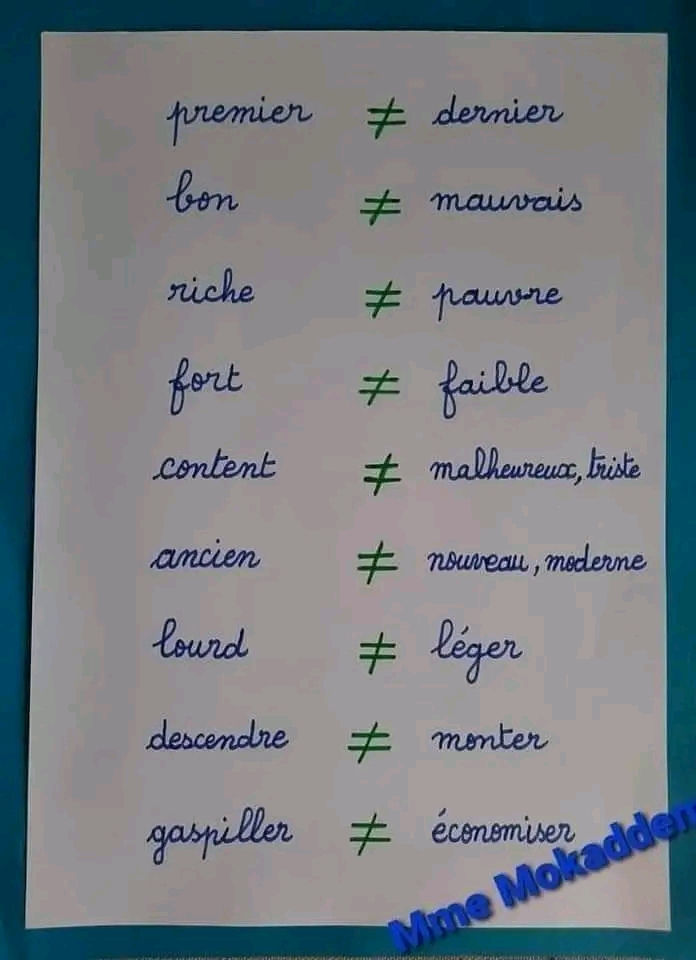 premier ≠ dernier
bon ≠ mauvais
riche ≠ pauvre
fort ≠ faible
content ≠ malheureux, triste
ancien ≠ nouveau, moderne
lourd ≠ léger
descendre ≠ monter
gaspiller ≠ économiser
Mme Mokaddem